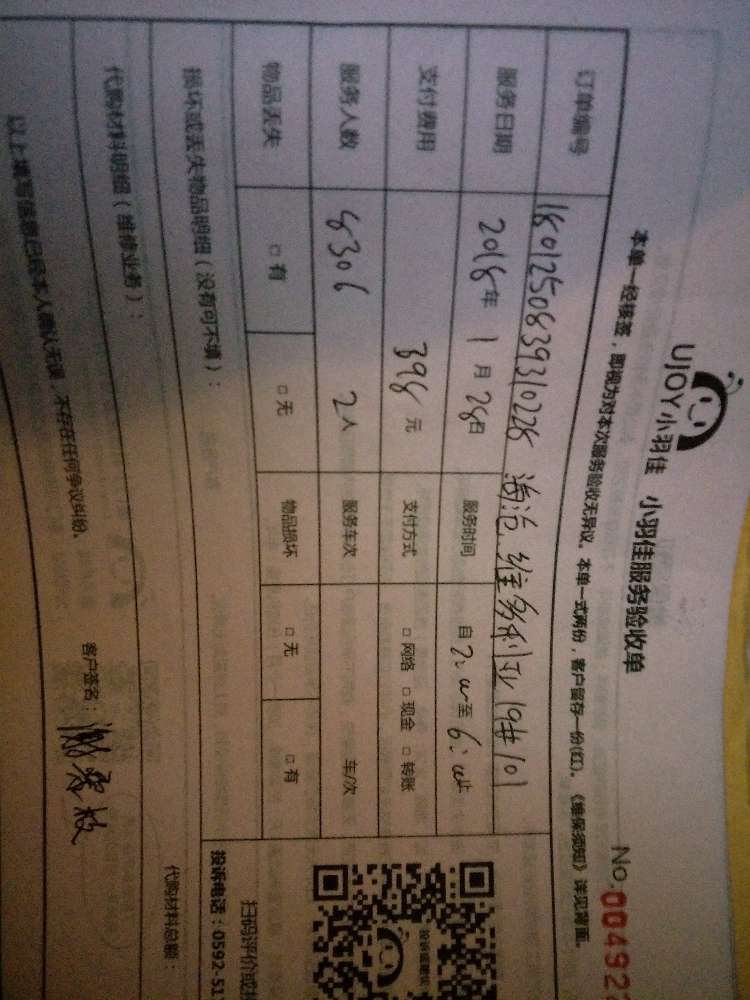 UJOY小羽佳 小羽佳服务验收单
No.00492
本单一经接签，即视为对本次服务验收无异议。本单一式两份，客户留存一份(红)。《维保须知》详见背面。
订单编号 1801250839310228 海沧维多利亚19#101
服务日期 2018年1月28日 服务时间 自2:00至6:00止
支付费用 398元 支付方式 □网络 □现金 □转账
服务人数 8306 2人 服务车次 车/次
物品丢失 □有 □无 物品损坏 □无 □有
损坏或丢失物品明细（没有可不填）：
代购材料明细（维修业务）： 代购材料总额：
以上填写信息已经本人确认无误，不存在任何争议纠纷。 客户签名：
扫码评价或
投诉电话：0592-51